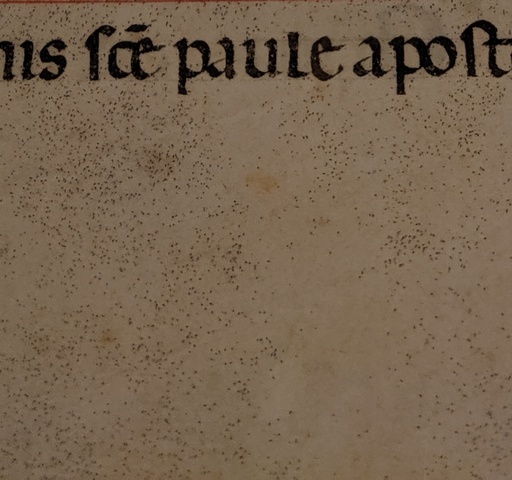 nis sc̄e paule apost